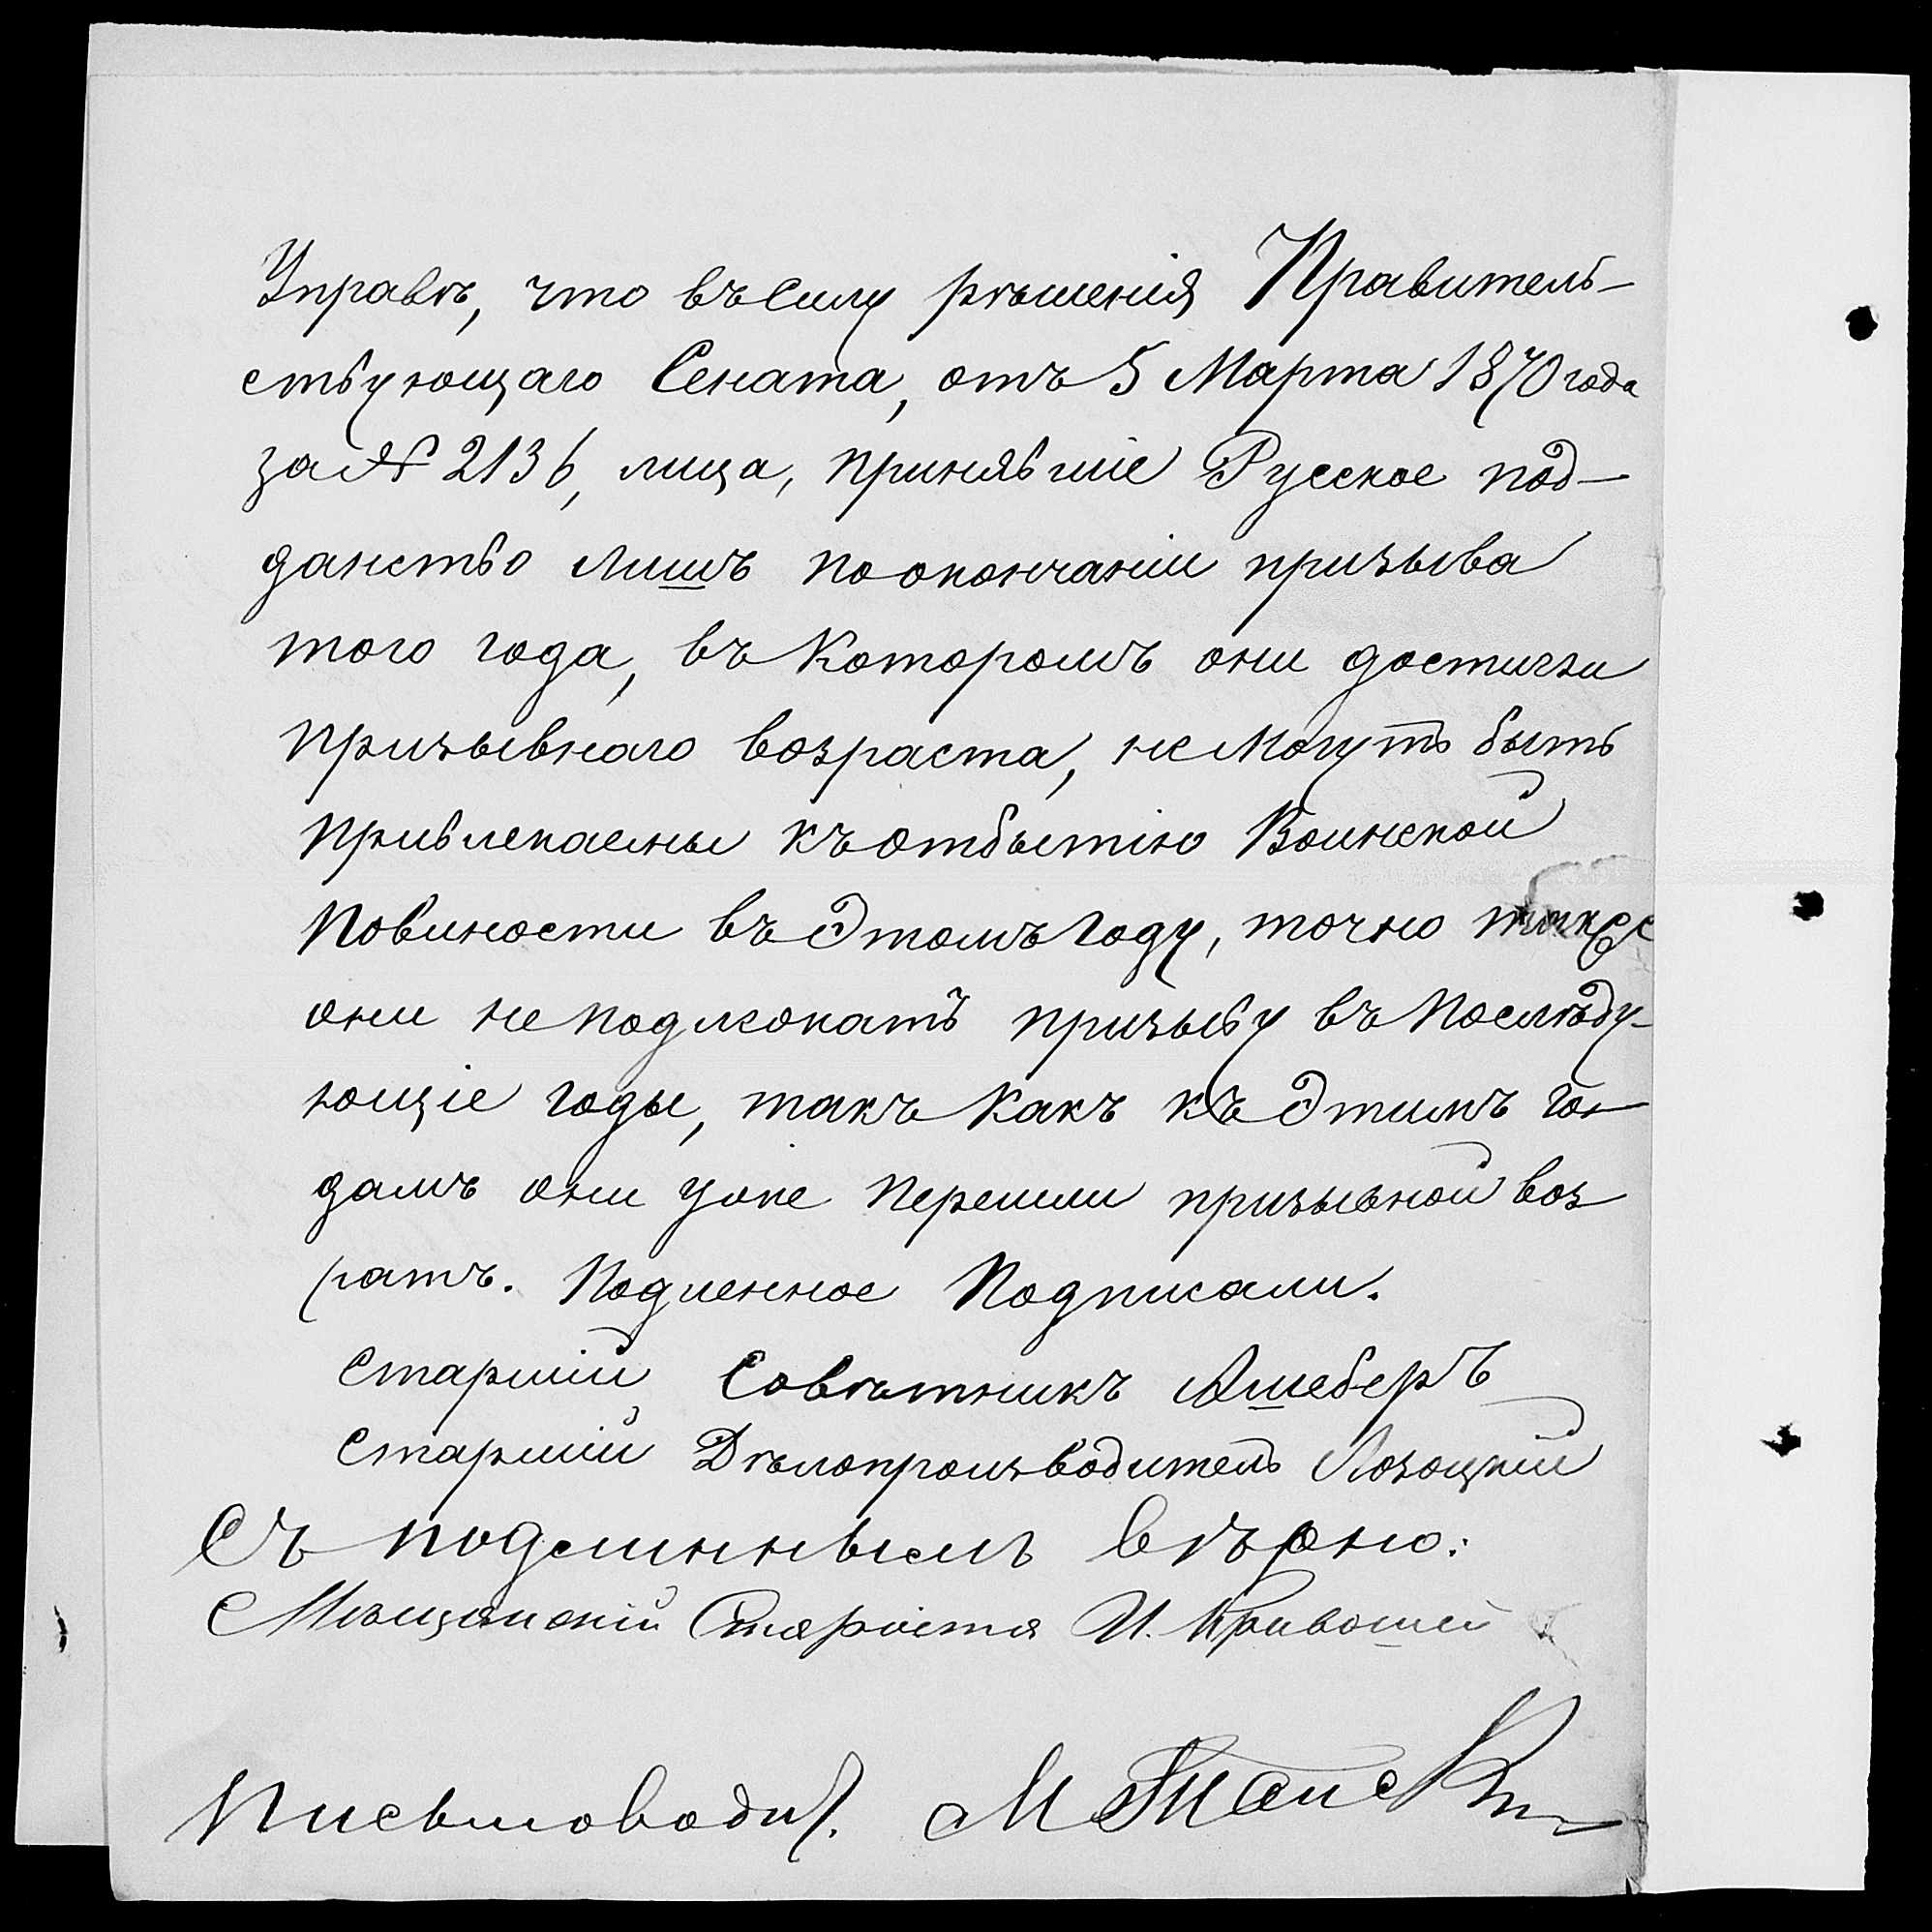 Управѣ, что въ силу рѣшенія Правитель-
ствующаго Сената, отъ 5 Марта 1870 года
за № 2136, лица, принявшіе Русское под-
данство лишъ по окончаніи призыва
того года, въ которомъ они достигли
призывнаго возраста, не могутъ быть
привлекаемы къ отбытію Воинской
повиности въ Этомъ году, точно также
они не подлежатъ призыву въ послѣду-
ющіе годы, такъ какъ къ Этимъ го-
дамъ они уже перешли призывной воз
ратъ. Подленное Подписали.
Старшій Совѣтникъ Ашеберъ
Старшій Дѣлопроизводитель Лозоцкій
Съ подлиннымъ вѣрно:
Мѣщанскій Староста И. Кривошей
Письмоводит. М